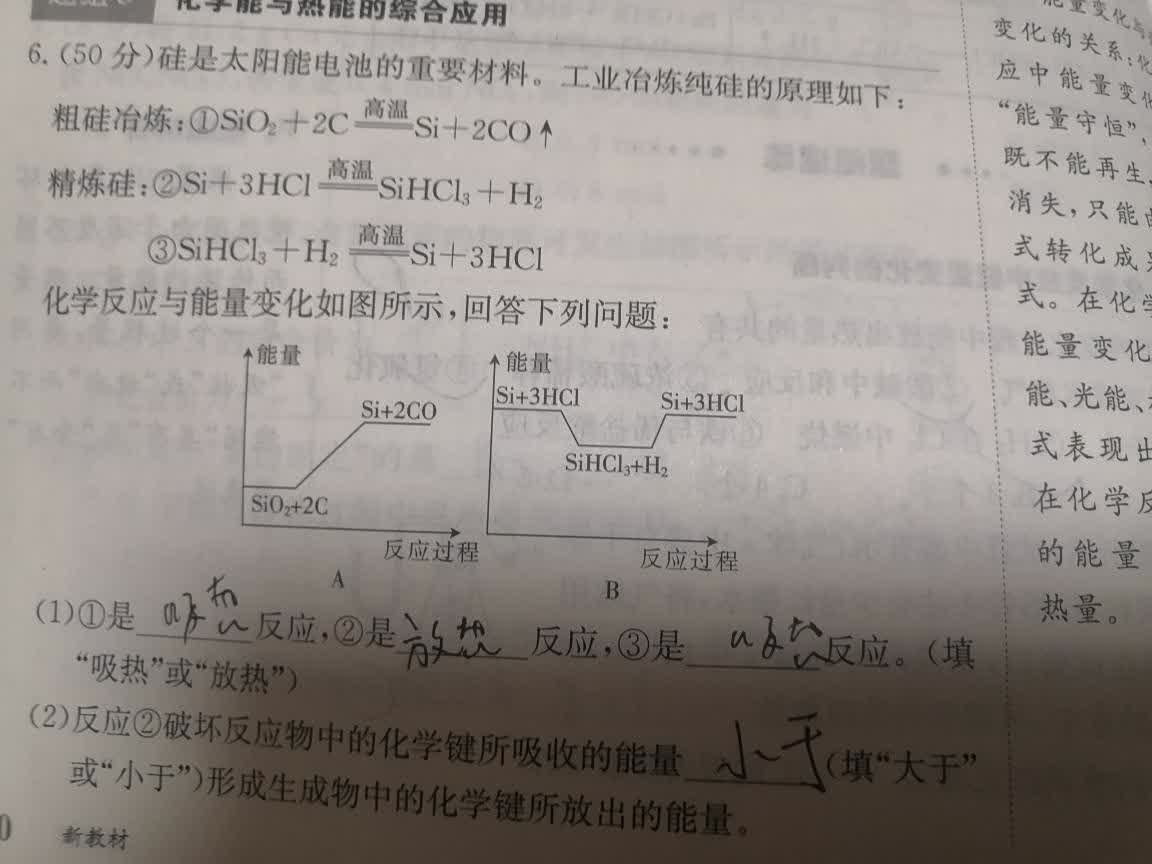 化学能与热能的综合应用
6.(50分)硅是太阳能电池的重要材料。工业冶炼纯硅的原理如下:
粗硅冶炼:①SiO₂+2C 高温 Si+2CO↑
精炼硅:②Si+3HCl 高温 SiHCl₃+H₂
③SiHCl₃+H₂ 高温 Si+3HCl
化学反应与能量变化如图所示,回答下列问题:
能量
Si+2CO
SiO₂+2C
反应过程
A
能量
Si+3HCl
Si+3HCl
SiHCl₃+H₂
反应过程
B
(1)①是 吸热 反应,②是 放热 反应,③是 吸热 反应。(填
“吸热”或“放热”)
(2)反应②破坏反应物中的化学键所吸收的能量 小于 (填“大于”
或“小于”)形成生成物中的化学键所放出的能量。
新教材
能量变化与
变化的关系:化
应中能量变化
“能量守恒”,
既不能再生,
消失,只能
式转化成
式。在化学
能量变化
能、光能、
式表现出
在化学反
的能量
热量。